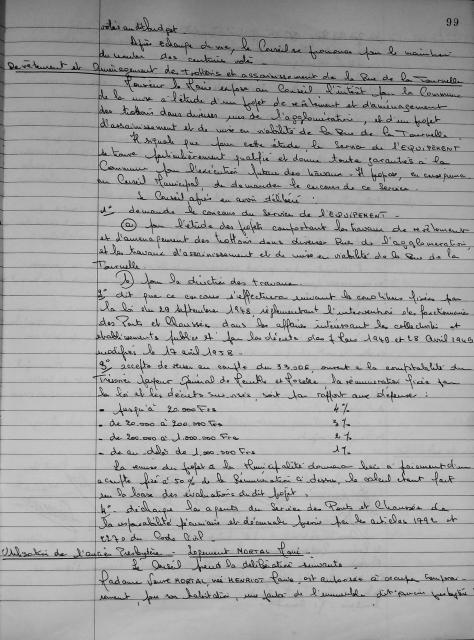 99
votés au budget
Après échange de vue, le Conseil se prononce pour le maintien
du nombre des centimes voté
Revêtement et Aménagement des trottoirs et assainissement de la Rue de la Tournelle
Monsieur le Maire expose au Conseil l'intérêt pour la Commune
de la mise à l'étude d'un projet de revêtement et d'aménagement
des trottoirs dans diverses rues de l'agglomération, et d'un projet
d'assainissement et de mise en viabilité de la Rue de la Tournelle.
Il signale que pour cette étude, le Service de l'EQUIPEMENT
se trouve particulièrement qualifié et donne toute garanties à la
Commune pour l'exécution future des travaux. Il propose, en conséquence
au Conseil Municipal, de demander le concours de ce Service.
Le Conseil après en avoir délibéré :
1° - demande le concours du Service de l'EQUIPEMENT -
a) pour l'étude des projets comportant les travaux de revêtement
et d'aménagement des trottoirs dans diverses Rues de l'agglomération,
et les travaux d'assainissement et de mise en viabilité de la Rue de la
Tournelle.
b) pour la direction des travaux.
2° - dit que ce concours s'effectuera suivant les conditions fixées par
la loi du 29 Septembre 1948, réglementant l'intervention des fonctionnaires
des Ponts et Chaussées dans les affaires intéressant les collectivités et
établissements publics et par les décrets des 7 Mars 1949 et 28 Avril 1949
modifiés le 17 avril 1958.
3° - accepte de verser au compte du 33.006, ouvert à la comptabilité du
Trésorier Payeur Général de la rémunération fixée par
la loi et les décrets sus-visés, soit par rapport aux dépenses :
- jusqu'à 20.000 Frs 4%
- de 20.000 à 200.000 Frs 3%
- de 200.000 à 1.000.000 Frs 2%
- de au delà de 1.000.000 Frs 1%
La remise du projet à la Municipalité donnera lieu à paiement d'un
acompte fixé à 50% de la rémunération ci-dessus, le calcul étant fait
sur la base des évaluations dudit projet.
4° - décharge les agents du Service des Ponts et Chaussées de
la responsabilité pécuniaire et décennale prévue par les articles 1792 et
2270 du Code Civil.
Utilisation de l'ancien Presbytère - logement MORTAL
Le Conseil prend la délibération suivante.
Madame Veuve MORTAL, née HENRIOT Marie, est autorisée à occuper temporai-
rement, pour son habitation, une partie de l'immeuble dit "ancien presbytère"